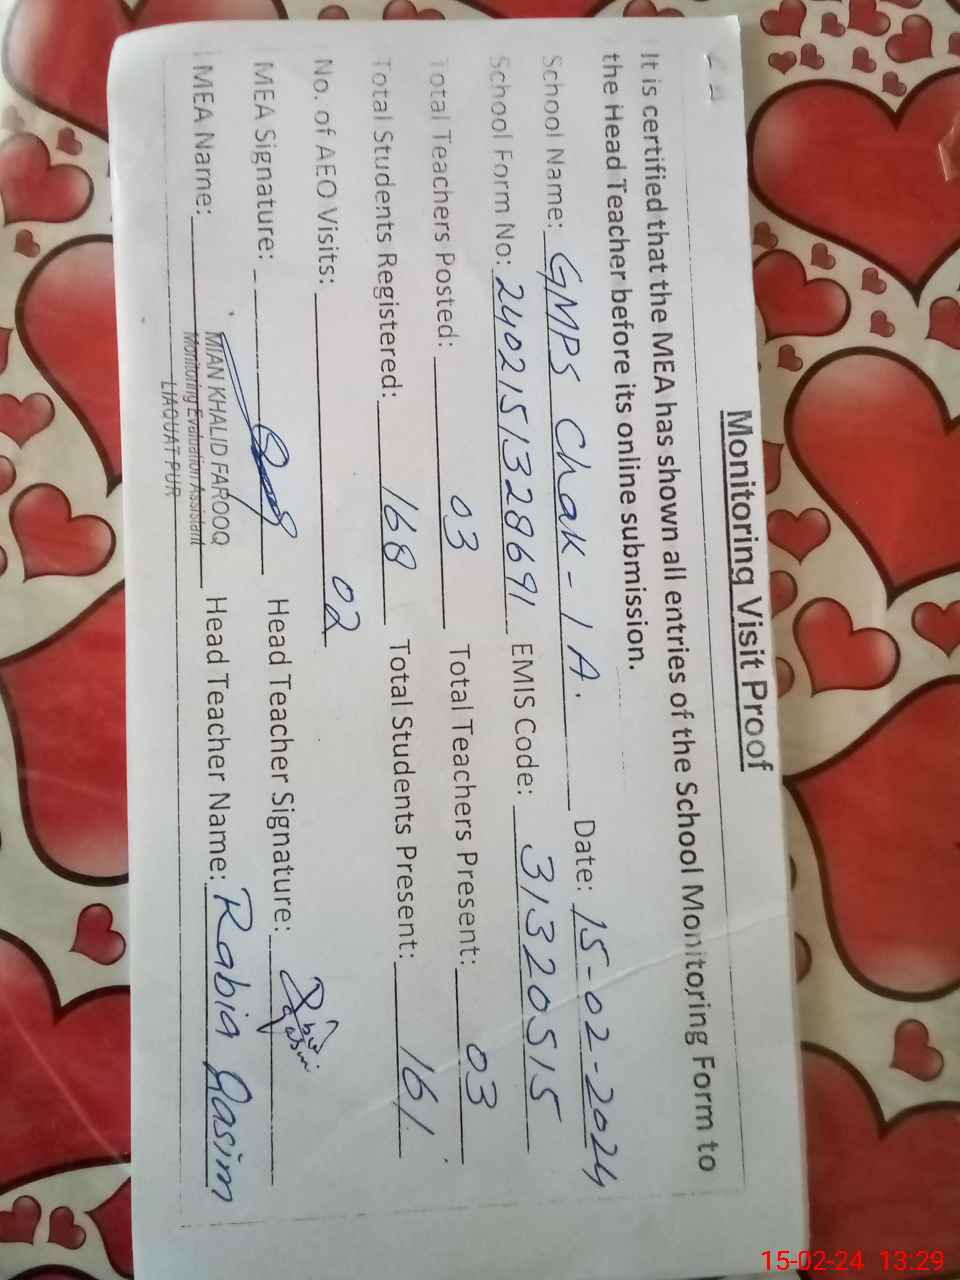 Monitoring Visit Proof
It is certified that the MEA has shown all entries of the School Monitoring Form to
the Head Teacher before its online submission.
School Name: GMPS Chak-1A. Date: 15-02-2024
School Form No: 2402151328691 EMIS Code: 31320515
Total Teachers Posted: 03 Total Teachers Present: 03
Total Students Registered: 168 Total Students Present: 161
No. of AEO Visits: 02
MEA Signature: Head Teacher Signature:
MEA Name: MIAN KHALID FAROOQ Head Teacher Name: Rabia Qasim
Monitoring Evaluation Assistant
LIAQUAT PUR
15-02-24 13:29